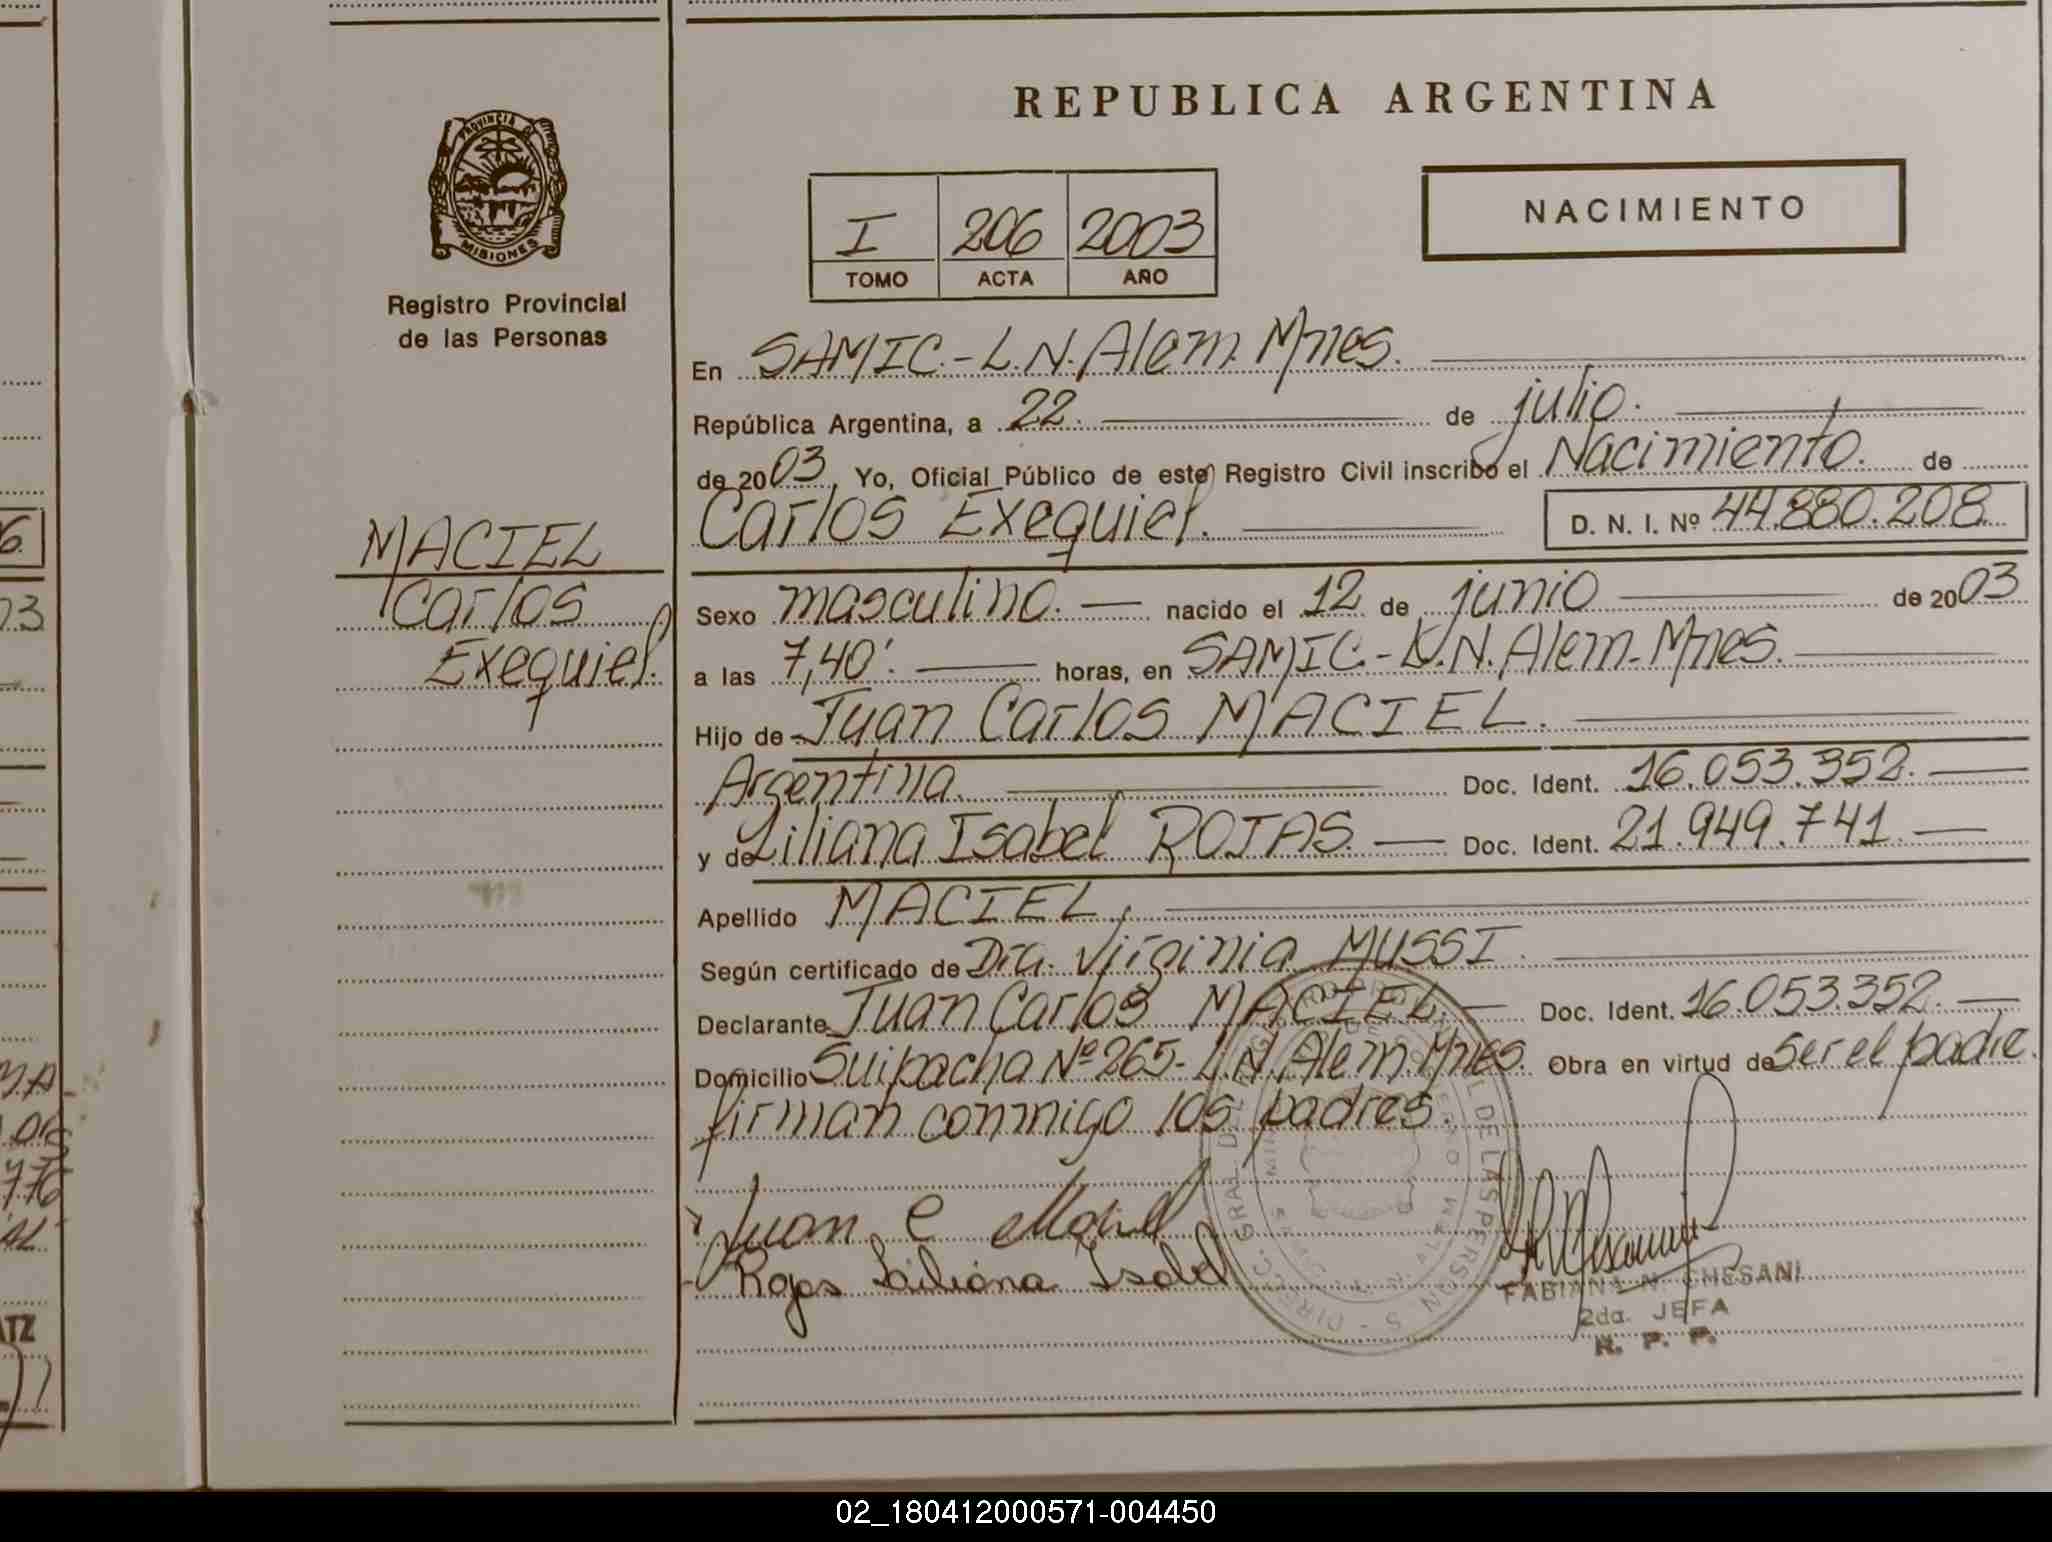 REPUBLICA ARGENTINA
PROVINCIA DE MISIONES
Registro Provincial
de las Personas
I 206 2003
TOMO ACTA AÑO
NACIMIENTO
En SAMIC.-L.N.Alem.Mnes.
República Argentina, a 22. de julio.
de 2003. Yo, Oficial Público de este Registro Civil inscribo el Nacimiento. de
Carlos Exequiel. D. N. I. Nº 44.880.208.
MACIEL
Carlos
Exequiel.
Sexo masculino. nacido el 12 de junio de 2003
a las 7,40'. horas, en SAMIC.-L.N.Alem.Mnes.
Hijo de Juan Carlos MACIEL.
Argentina. Doc. Ident. 16.053.352.
y de Liliana Isabel ROJAS. Doc. Ident. 21.949.741.
Apellido MACIEL.
Según certificado de Dra. Virginia MUSSI.
Declarante Juan Carlos MACIEL. Doc. Ident. 16.053.352.
Domicilio Suipacha Nº 265-L.N.Alem.Mnes. Obra en virtud de ser el padre.
firman conmigo los padres.
Juan C Maciel
Rojas Liliana Isabel
FABIANA N. CHESANI
2da. JEFA
R. P. P.
02_180412000571-004450